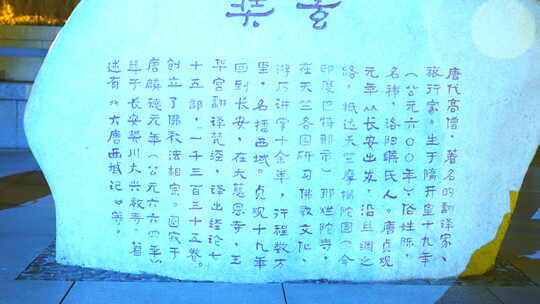 玄奘
唐代高僧，著名的翻译家、
旅行家。生于隋开皇十九年
（公元六〇〇年）俗姓陈，
名祎，洛阳缑氏人。唐贞观
元年从长安出发，沿丝绸之
路，抵达天竺摩揭陀国（今
印度巴特那市）那烂陀寺，
在天竺各国研习佛教文化，
游历讲学十余年，行程数万
里，名播西域。贞观十九年
回到长安，在大慈恩寺，玉
华宫翻译梵经，译出经论七
十五部，一千三百三十五卷。
创立了佛教法相宗。圆寂于
唐麟德元年（公元六六四年）
葬于长安樊川大兴教寺，著
述有《大唐西域记》等。